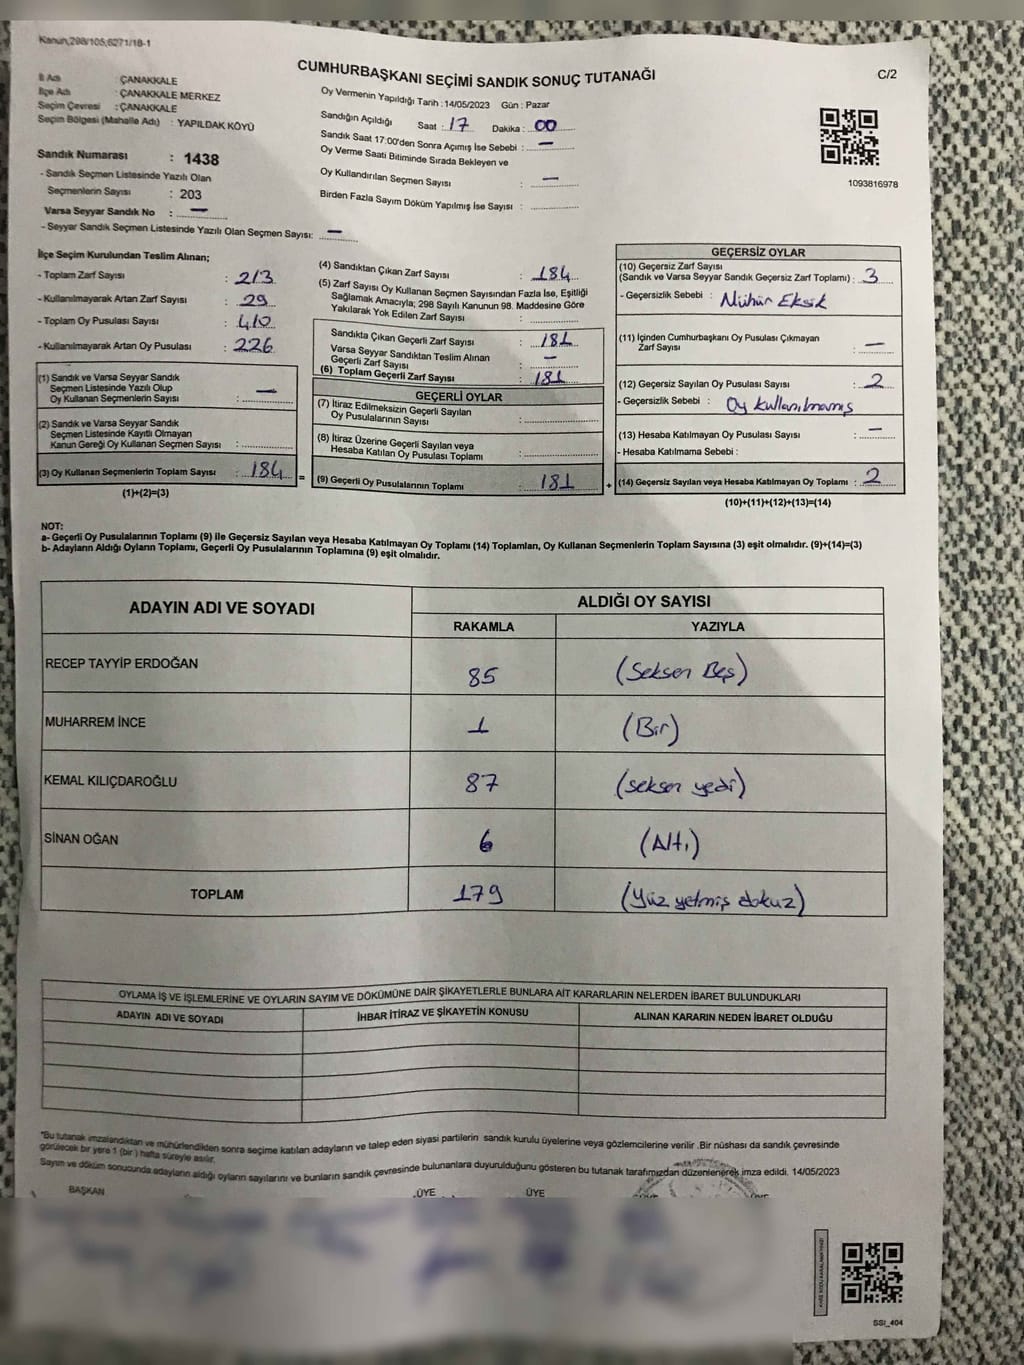 Kanun,298/105;6271/18-1
CUMHURBAŞKANI SEÇİMİ SANDIK SONUÇ TUTANAĞI
C/2
İl Adı : ÇANAKKALE
İlçe Adı : ÇANAKKALE MERKEZ
Seçim Çevresi : ÇANAKKALE
Seçim Bölgesi (Mahalle Adı) : YAPILDAK KÖYÜ
Sandık Numarası : 1438
- Sandık Seçmen Listesinde Yazılı Olan
Seçmenlerin Sayısı : 203
Varsa Seyyar Sandık No : —
- Seyyar Sandık Seçmen Listesinde Yazılı Olan Seçmen Sayısı: —
Oy Vermenin Yapıldığı Tarih : 14/05/2023 Gün : Pazar
Sandığın Açıldığı Saat : 17 Dakika : 00
Sandık Saat 17:00'den Sonra Açımış İse Sebebi : —
Oy Verme Saati Bitiminde Sırada Bekleyen ve
Oy Kullandırılan Seçmen Sayısı : —
Birden Fazla Sayım Döküm Yapılmış İse Sayısı :
1093816978
İlçe Seçim Kurulundan Teslim Alınan;
- Toplam Zarf Sayısı : 213
- Kullanılmayarak Artan Zarf Sayısı : 29
- Toplam Oy Pusulası Sayısı : 410
- Kullanılmayarak Artan Oy Pusulası : 226
(1) Sandık ve Varsa Seyyar Sandık
Seçmen Listesinde Yazılı Olup
Oy Kullanan Seçmenlerin Sayısı : —
(2) Sandık ve Varsa Seyyar Sandık
Seçmen Listesinde Kayıtlı Olmayan
Kanun Gereği Oy Kullanan Seçmen Sayısı :
(3) Oy Kullanan Seçmenlerin Toplam Sayısı : 184 =
(1)+(2)=(3)
(4) Sandıktan Çıkan Zarf Sayısı : 184
(5) Zarf Sayısı Oy Kullanan Seçmen Sayısından Fazla İse, Eşitliği
Sağlamak Amacıyla; 298 Sayılı Kanunun 98. Maddesine Göre
Yakılarak Yok Edilen Zarf Sayısı :
Sandıkta Çıkan Geçerli Zarf Sayısı : 181
Varsa Seyyar Sandıktan Teslim Alınan
Geçerli Zarf Sayısı : —
(6) Toplam Geçerli Zarf Sayısı : 181
GEÇERLİ OYLAR
(7) İtiraz Edilmeksizin Geçerli Sayılan
Oy Pusulalarının Sayısı :
(8) İtiraz Üzerine Geçerli Sayılan veya
Hesaba Katılan Oy Pusulası Toplamı :
(9) Geçerli Oy Pusulalarının Toplamı : 181 +
GEÇERSİZ OYLAR
(10) Geçersiz Zarf Sayısı
(Sandık ve Varsa Seyyar Sandık Geçersiz Zarf Toplamı) : 3
- Geçersizlik Sebebi : Mühür Eksik
(11) İçinden Cumhurbaşkanı Oy Pusulası Çıkmayan
Zarf Sayısı : —
(12) Geçersiz Sayılan Oy Pusulası Sayısı : 2
- Geçersizlik Sebebi : Oy kullanılmamış
(13) Hesaba Katılmayan Oy Pusulası Sayısı : —
- Hesaba Katılmama Sebebi :
(14) Geçersiz Sayılan veya Hesaba Katılmayan Oy Toplamı : 2
(10)+(11)+(12)+(13)=(14)
NOT:
a- Geçerli Oy Pusulalarının Toplamı (9) ile Geçersiz Sayılan veya Hesaba Katılmayan Oy Toplamı (14) Toplamları, Oy Kullanan Seçmenlerin Toplam Sayısına (3) eşit olmalıdır. (9)+(14)=(3)
b- Adayların Aldığı Oyların Toplamı, Geçerli Oy Pusulalarının Toplamına (9) eşit olmalıdır.
ADAYIN ADI VE SOYADI
ALDIĞI OY SAYISI
RAKAMLA YAZIYLA
RECEP TAYYİP ERDOĞAN 85 (Seksen Beş)
MUHARREM İNCE 1 (Bir)
KEMAL KILIÇDAROĞLU 87 (seksen yedi)
SİNAN OĞAN 6 (Altı)
TOPLAM 179 (Yüz yetmiş dokuz)
OYLAMA İŞ VE İŞLEMLERİNE VE OYLARIN SAYIM VE DÖKÜMÜNE DAİR ŞİKAYETLERLE BUNLARA AİT KARARLARIN NELERDEN İBARET BULUNDUKLARI
ADAYIN ADI VE SOYADI İHBAR İTİRAZ VE ŞİKAYETİN KONUSU ALINAN KARARIN NEDEN İBARET OLDUĞU
*Bu tutanak imzalandıktan ve mühürlendikten sonra seçime katılan adayların ve talep eden siyasi partilerin sandık kurulu üyelerine veya gözlemcilerine verilir .Bir nüshası da sandık çevresinde
görülecek bir yere 1 (bir ) hafta süreyle asılır.
Sayım ve döküm sonucunda adayların aldığı oyların sayılarını ve bunların sandık çevresinde bulunanlara duyurulduğunu gösteren bu tutanak tarafımızdan düzenlenerek imza edildi. 14/05/2023
BAŞKAN ÜYE ÜYE
SSI_404